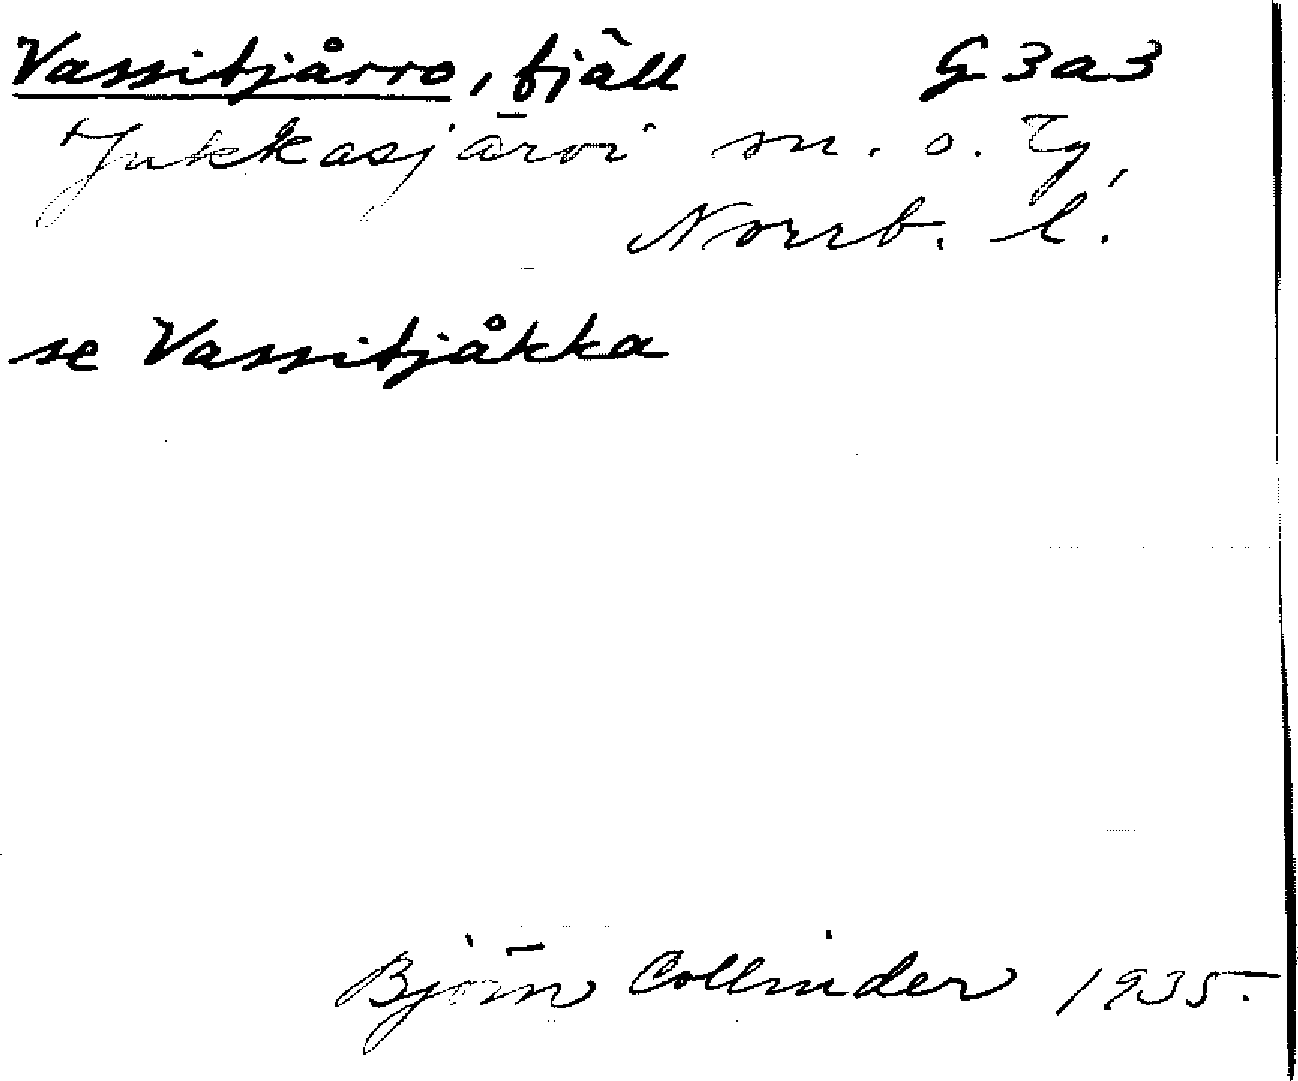 Vassitjårro, fjäll G3a3
Jukkasjärvi sn. o. tg,
Norrb. l.
se Vassitjåkka
Björn Collinder 1935.